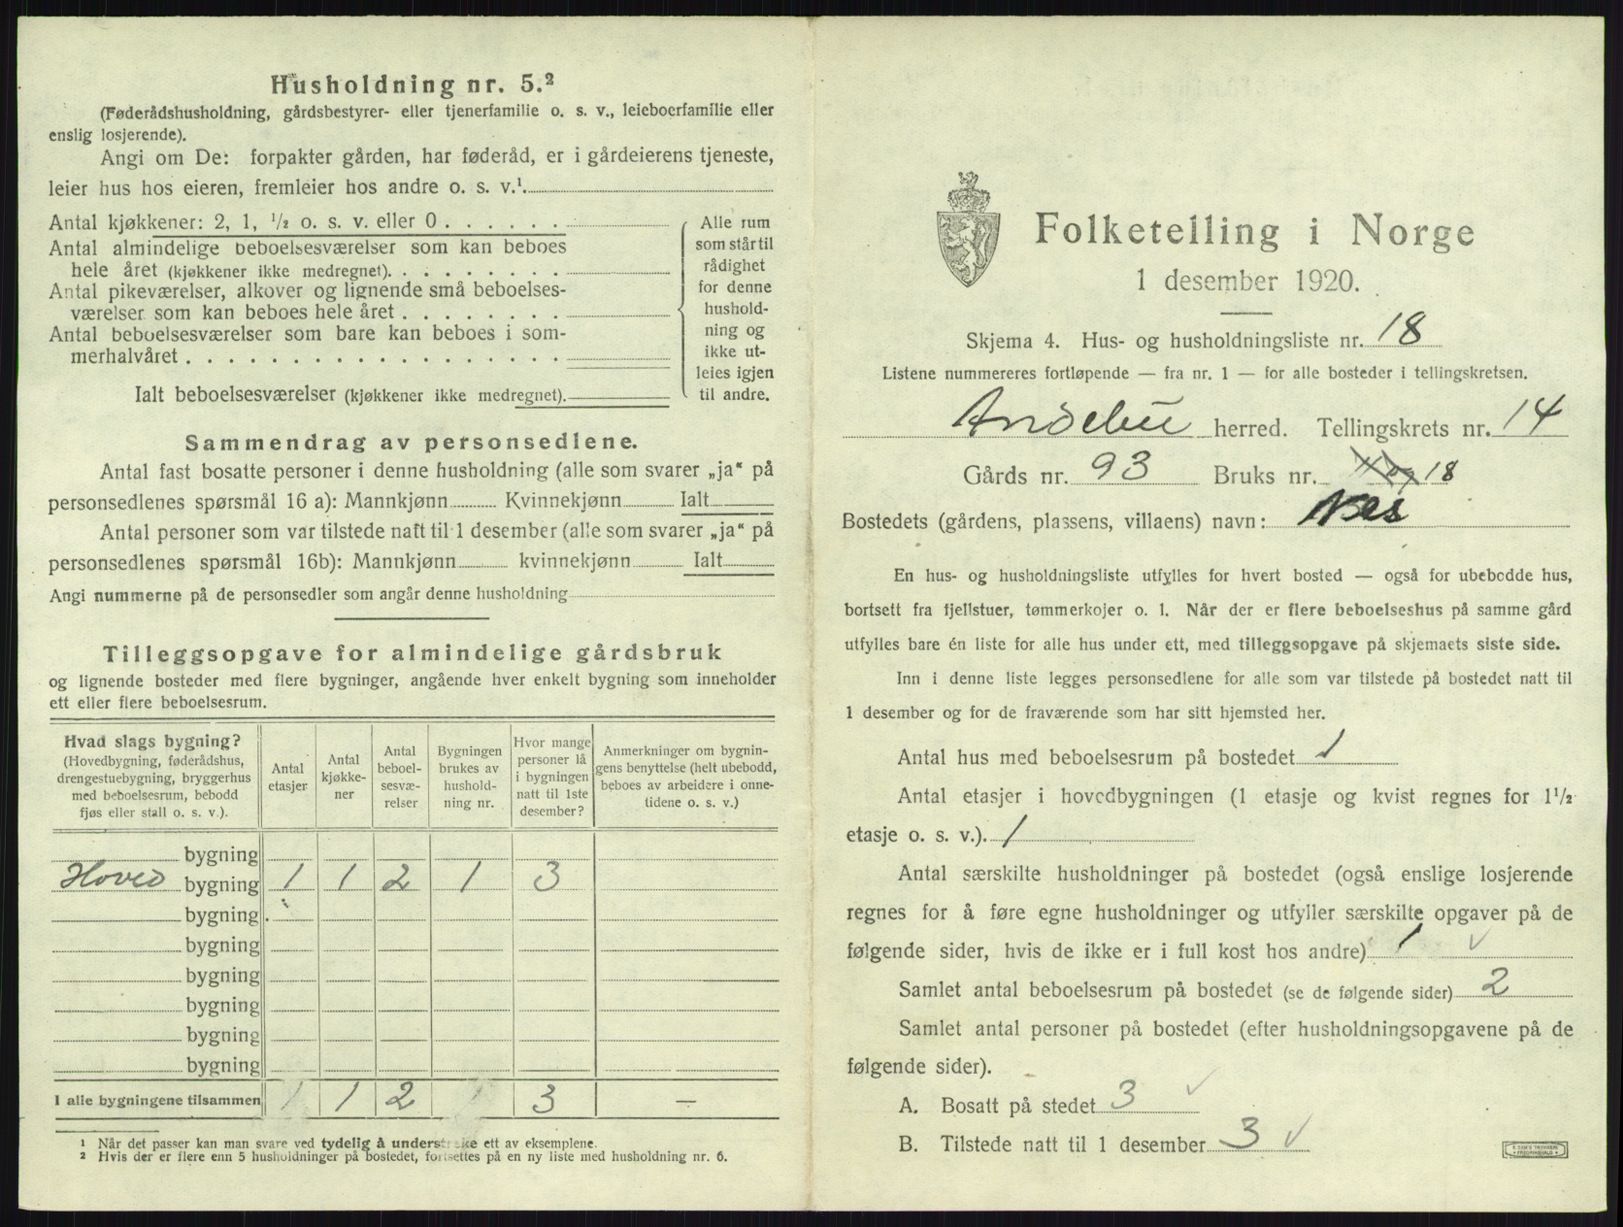 Husholdning nr. 5.²
(Føderådshusholdning, gårdsbestyrer- eller tjenerfamilie o. s. v., leieboerfamilie eller
enslig losjerende).
Angi om De: forpakter gården, har føderåd, er i gårdeierens tjeneste,
leier hus hos eieren, fremleier hos andre o. s. v.¹.
Antal kjøkkener: 2, 1, ½ o. s. v. eller 0 . . . . . .
Antal almindelige beboelsesværelser som kan beboes
hele året (kjøkkener ikke medregnet). . . . . . . . .
Antal pikeværelser, alkover og lignende små beboelses-
værelser som kan beboes hele året . . . . . . . .
Antal beboelsesværelser som bare kan beboes i som-
merhalvåret . . . . . . . . . . . . . . . . . .
Ialt beboelsesværelser (kjøkkener ikke medregnet).
Alle rum
som står til
rådighet
for denne
hushold-
ning og
ikke ut-
leies igjen
til andre.
Sammendrag av personsedlene.
Antal fast bosatte personer i denne husholdning (alle som svarer „ja“ på
personsedlenes spørsmål 16 a): Mannkjønn Kvinnekjønn Ialt
Antal personer som var tilstede natt til 1 desember (alle som svarer „ja“ på
personsedlenes spørsmål 16b): Mannkjønn kvinnekjønn Ialt
Angi nummerne på de personsedler som angår denne husholdning
Tilleggsopgave for almindelige gårdsbruk
og lignende bosteder med flere bygninger, angående hver enkelt bygning som inneholder
ett eller flere beboelsesrum.
Hvad slags bygning?
(Hovedbygning, føderådshus,
drengestuebygning, bryggerhus
med beboelsesrum, bebodd
fjøs eller stall o. s. v.).
Antal
etasjer
Antal
kjøkke-
ner
Antal
beboel-
sesvæ-
relser
Bygningen
brukes av
hushold-
ning nr.
Hvor mange
personer lå
i bygningen
natt til 1ste
desember?
Anmerkninger om bygnin-
gens benyttelse (helt ubebodd,
beboes av arbeidere i onne-
tidene o. s. v.)
bygning
Hoved bygning 1 1 2 1 3
bygning
bygning
bygning
bygning
bygning
bygning
I alle bygningene tilsammen 1 1 2 1 3 —
¹ Når det passer kan man svare ved tydelig å understreke ett av eksemplene.
² Hvis der er flere enn 5 husholdninger på bostedet, fortsettes på en ny liste med husholdning nr. 6.
Folketelling i Norge
1 desember 1920.
Skjema 4. Hus- og husholdningsliste nr. 18
Listene nummereres fortløpende — fra nr. 1 — for alle bosteder i tellingskretsen.
Andebu herred. Tellingskrets nr. 14
Gårds nr. 93 Bruks nr. 18
Bostedets (gårdens, plassens, villaens) navn: Nes
En hus- og husholdningsliste utfylles for hvert bosted — også for ubebodde hus,
bortsett fra fjellstuer, tømmerkojer o. l. Når der er flere beboelseshus på samme gård
utfylles bare én liste for alle hus under ett, med tilleggsopgave på skjemaets siste side.
Inn i denne liste legges personsedlene for alle som var tilstede på bostedet natt til
1 desember og for de fraværende som har sitt hjemsted her.
Antal hus med beboelsesrum på bostedet 1
Antal etasjer i hovedbygningen (1 etasje og kvist regnes for 1½
etasje o. s. v.). 1
Antal særskilte husholdninger på bostedet (også enslige losjerende
regnes for å føre egne husholdninger og utfyller særskilte opgaver på de
følgende sider, hvis de ikke er i full kost hos andre) 1 ✓
Samlet antal beboelsesrum på bostedet (se de følgende sider) 2
Samlet antal personer på bostedet (efter husholdningsopgavene på de
følgende sider).
A. Bosatt på stedet 3 ✓
B. Tilstede natt til 1 desember 3 ✓